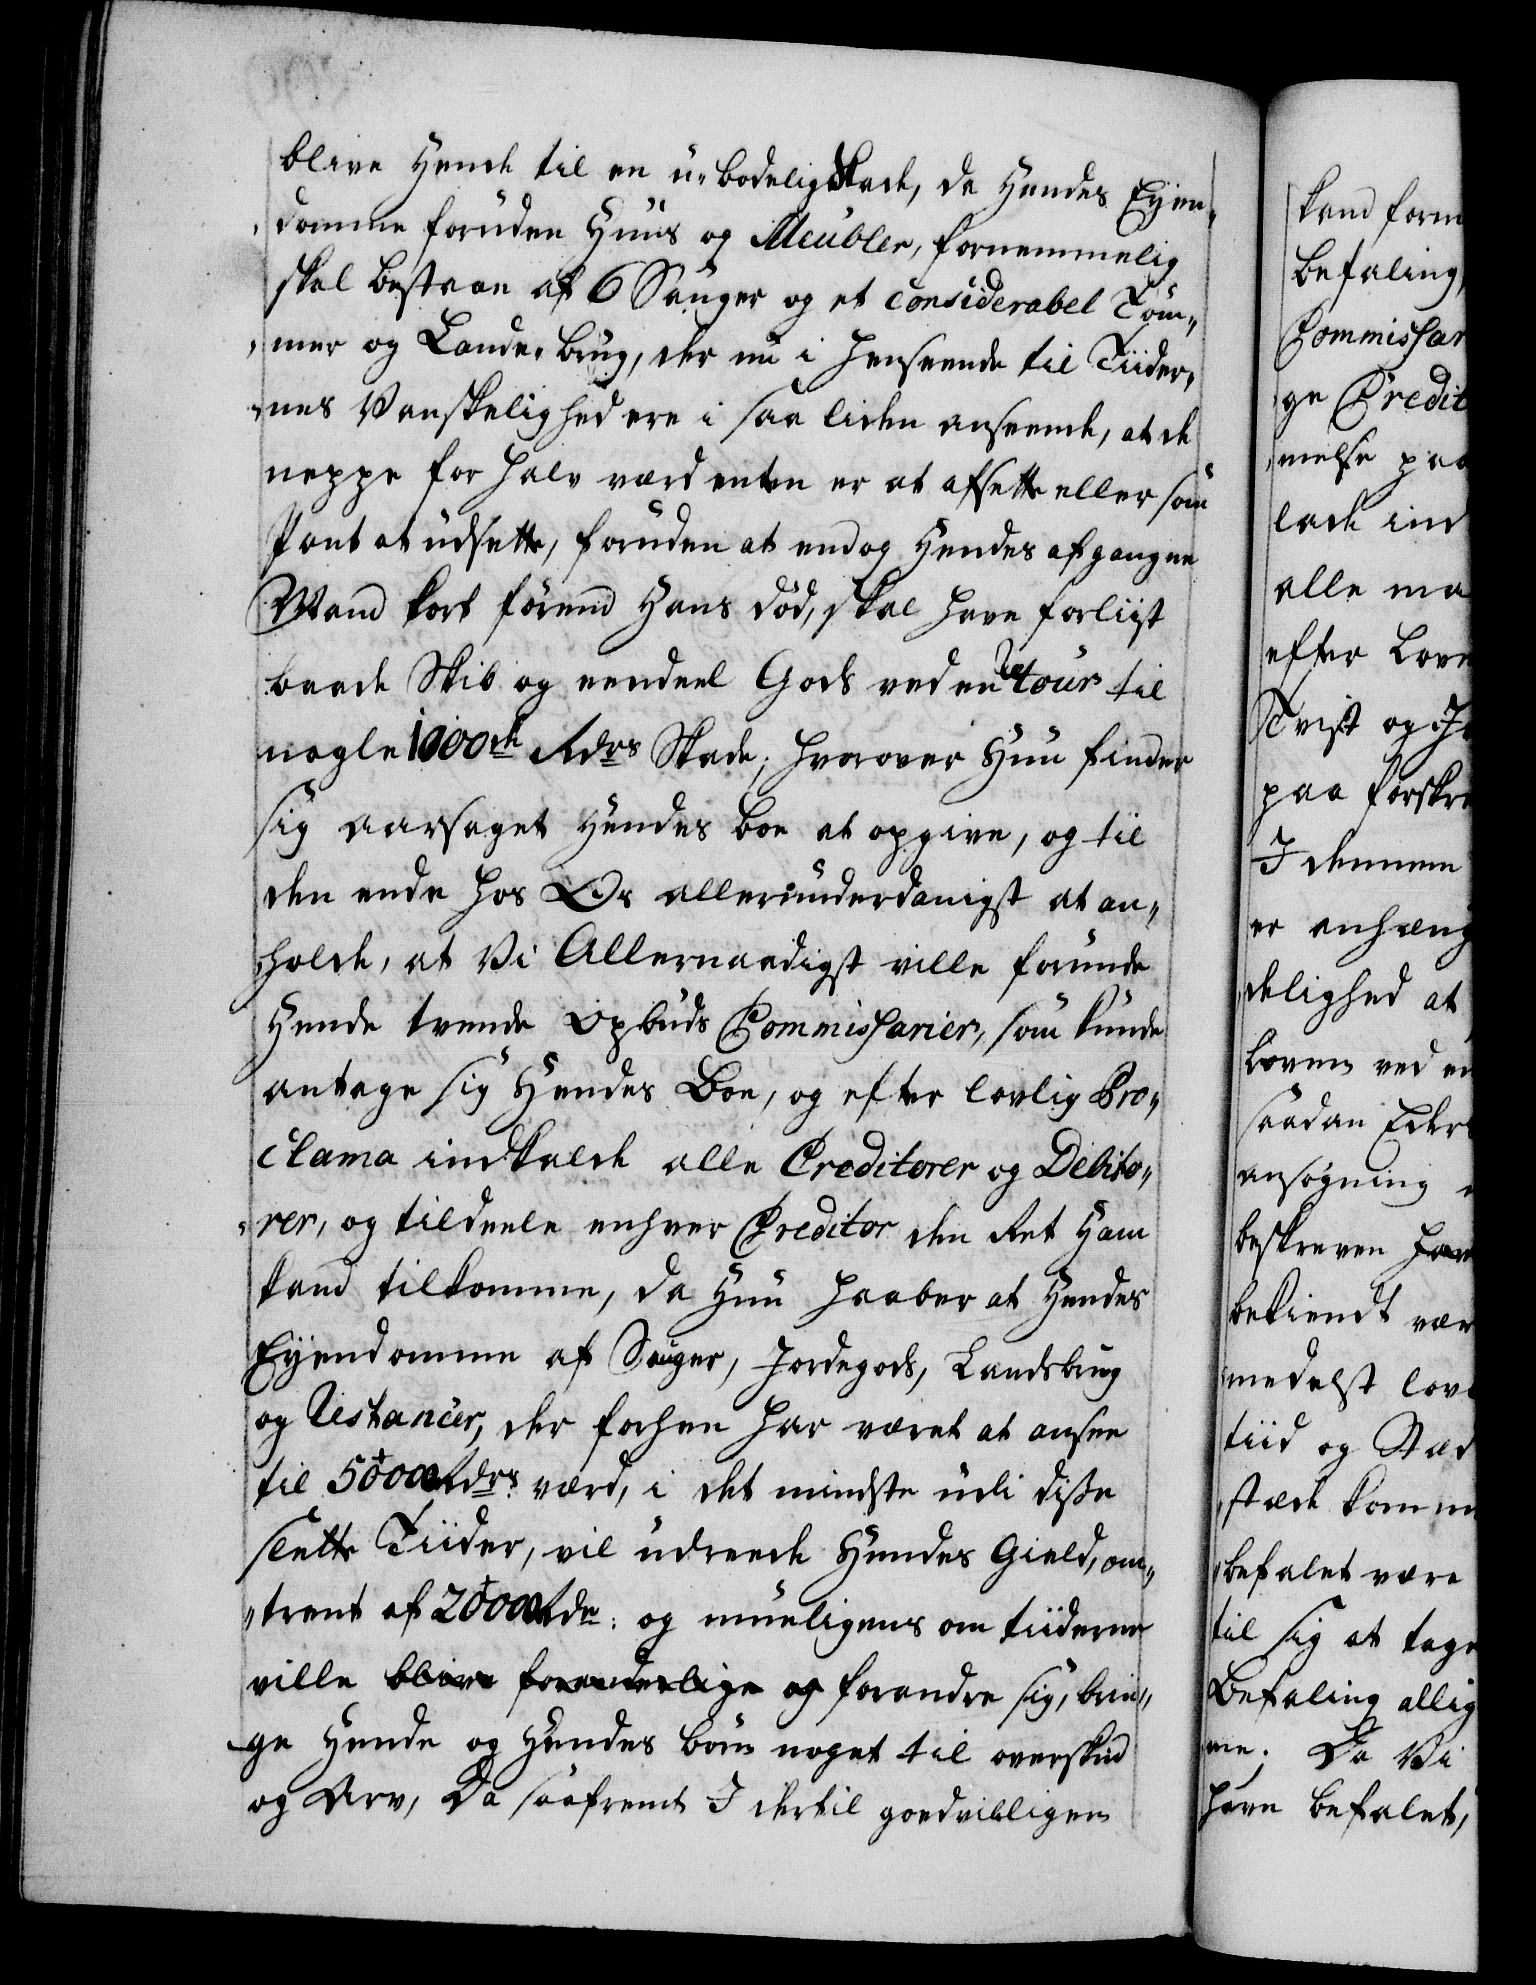 blive Hende til en u-bodelig Skade, da Hendes Eyen-
domme foruden Huus og Meubler, fornemmelig
skal bestaae af 6 Sauger og et considerabel Töm-
mer og Lande-brug, der nu i henseende til Tiider-
nes Vanskelighed ere i saa liden anseende, at de
neppe for halv værd enten er at afsette eller som
Pant at udsette, foruden at endog Hendes afgangne
Mand kort förend Hans död, skal have forliist
baade Skib og eendeel Gods ved en Retour til
nogle 1000de Rdrs Skade, hvorover Hun finder
sig aarsaget Hendes boe at opgive, og til
den ende hos Os allerunderdanigst at an-
holde, at Vi Allernaadigst ville forunde
Hende tvende Opbuds Commissarier, som kunde
antage sig Hendes Boe, og efter lovlig Pro-
clama indkalde alle Creditorer og Debito-
rer, og tildeele enhver Creditor den Ret Ham
kand tilkomme, da Hun haaber at Hendes
Eyendomme af Sauger, Jordegods, Landsbrug
og Uistancer, der forhen har været at ansee
til 50000 Rdrs værd, i det mindste udi disse
slette Tiider, vil udreede Hendes Gield, om-
trent af 20000 Rdr: og mueligens om tiiderne
ville blive foranderlige og forandre sig, brin-
ge Hende og Hendes börn noget til overskud
og Arv, Da saafremt I dertil goedvilligen
kand form
befaling,
Commissar
ge Credit
melse paa
lade ind
alle ma
efter Lov
Tvist og I
paa forskre
I dennem
er anhæng
delighed at
loven ved en
saadan Eders
ansögning
beskreven har
bekiendt vær
medelst lov
tiid og Stæd
stæde komm
befalet være
til sig at tage
Befaling allig
me. Da Vi
have befalet,